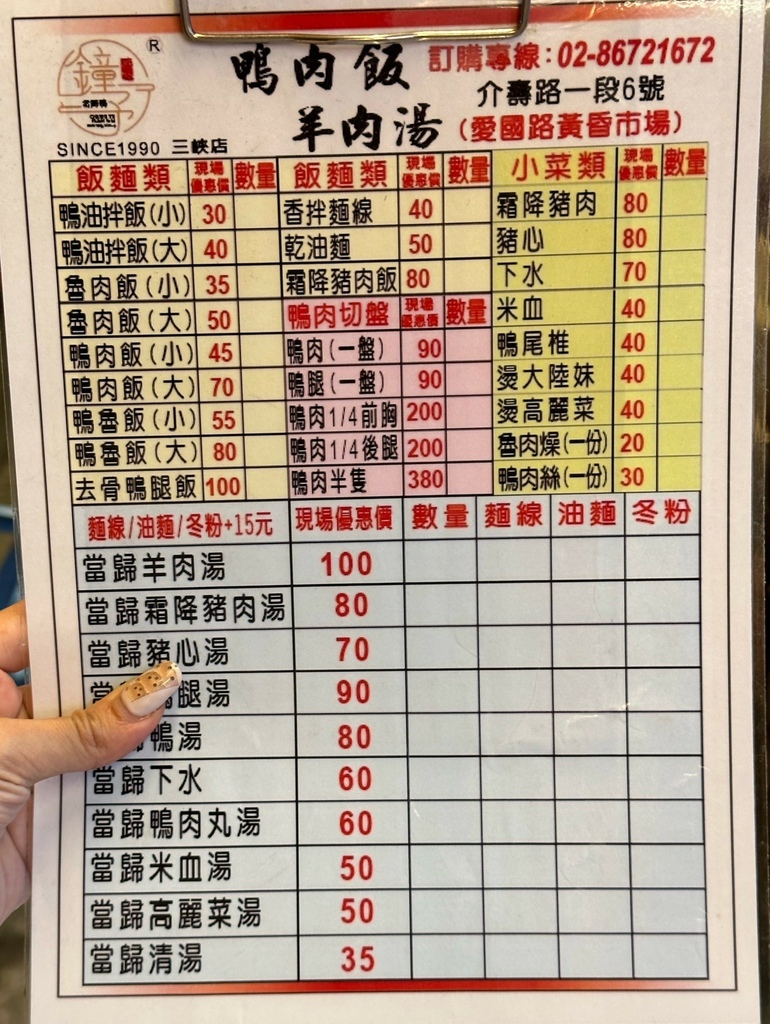 鐘子
®
SINCE1990 三峽店
鴨肉飯
羊肉湯
訂購專線：02-86721672
介壽路一段6號
(愛國路黃昏市場)
飯麵類 現場優惠價 數量
鴨油拌飯(小) 30
鴨油拌飯(大) 40
魯肉飯(小) 35
魯肉飯(大) 50
鴨肉飯(小) 45
鴨肉飯(大) 70
鴨魯飯(小) 55
鴨魯飯(大) 80
去骨鴨腿飯 100
飯麵類 現場優惠價 數量
香拌麵線 40
乾油麵 50
霜降豬肉飯 80
鴨肉切盤 現場優惠價 數量
鴨肉(一盤) 90
鴨腿(一盤) 90
鴨肉1/4前胸 200
鴨肉1/4後腿 200
鴨肉半隻 380
小菜類 現場優惠價 數量
霜降豬肉 80
豬心 80
下水 70
米血 40
鴨尾椎 40
燙大陸妹 40
燙高麗菜 40
魯肉燥(一份) 20
鴨肉絲(一份) 30
麵線/油麵/冬粉+15元 現場優惠價 數量 麵線 油麵 冬粉
當歸羊肉湯 100
當歸霜降豬肉湯 80
當歸豬心湯 70
當 腿湯 90
鴨湯 80
當歸下水 60
當歸鴨肉丸湯 60
當歸米血湯 50
當歸高麗菜湯 50
當歸清湯 35